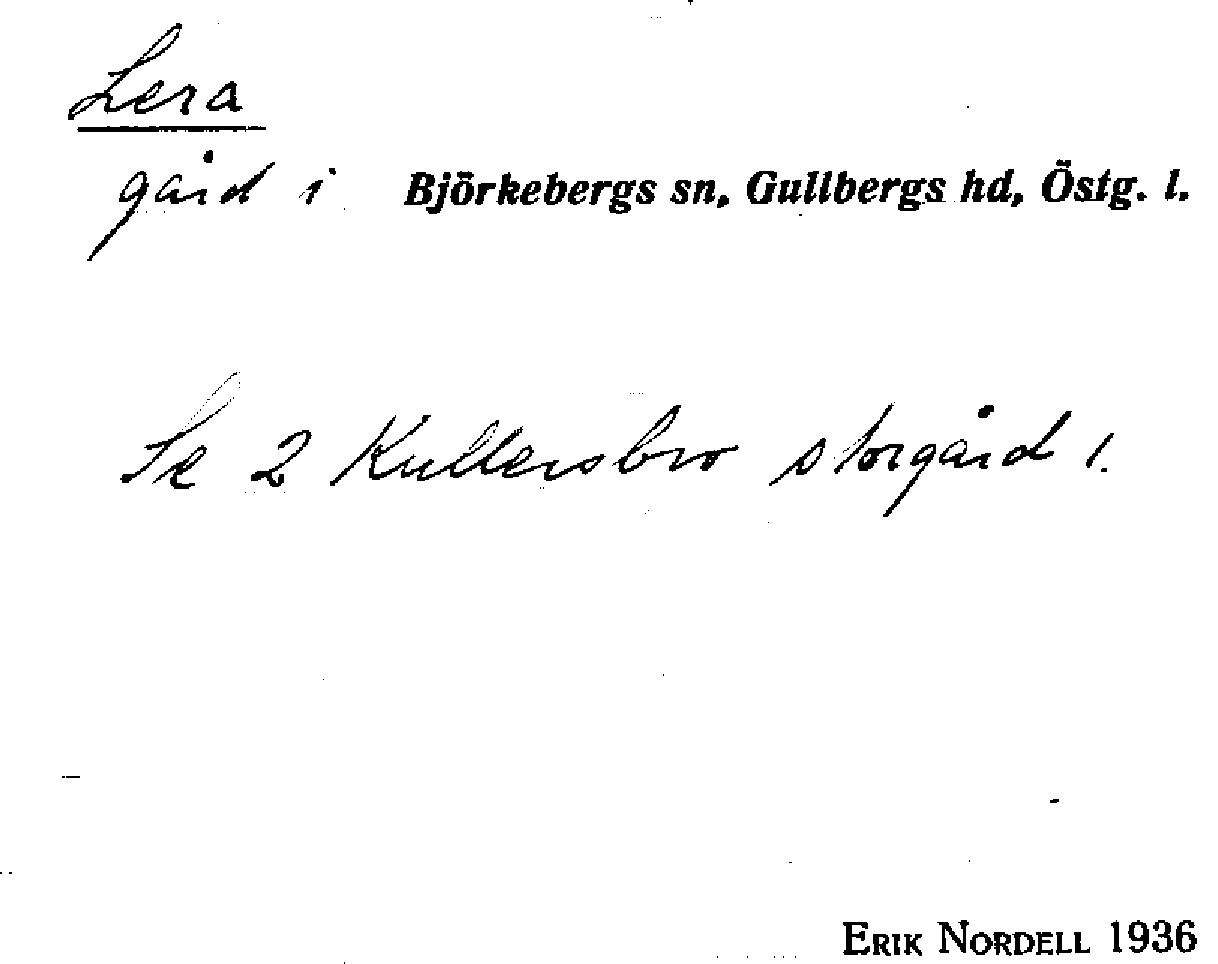 Lera
gård i Björkebergs sn, Gullbergs hd, Östg. l.
Se 2 Kullersbro storgård 1.
ERIK NORDELL 1936